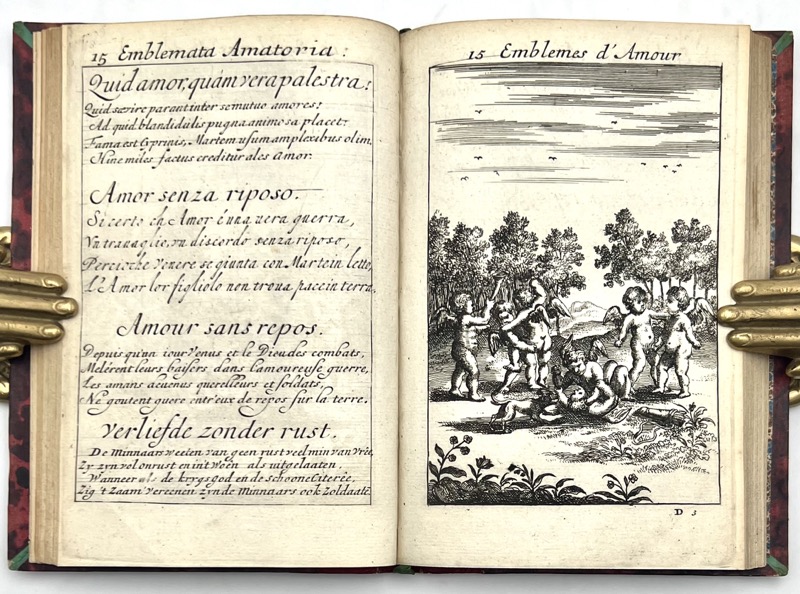 15 Emblemata Amatoria:
Quid amor, quàm vera palestra?
Quid sævire parant inter se mutuo amores?
Ad quid blandidulis pugna animosa placet?
Fama est Cyprinis, Martem usum amplexibus olim,
Hinc miles factus creditur ales amor.
Amor senza riposo.
Si certo ch Amor é una vera guerra,
Vn trauaglio, vn discordo senza riposo,
Percioche Venere se giunta con Marte in letto,
L'Amor lor figliolo non troua pace in terra.
Amour sans repos.
Depuis qu'un iour Venus et le Dieu des combats,
Mélérent leurs baisers, dans l'amoureuse guerre,
Les amans deuenus querelleurs et soldats,
Ne goutent guere entr'eux de repos sur la terre.
Verliefde zonder rust.
De Minnaars weeten van geen rust veel min van vrêe,
Zy zyn vol onrust en in't woên als uitgelaaten
Wanneer als de krygsgod en de schoone Citerêe,
Zig 't zaam vereenen zyn de Minnaars ook Zoldaatê.
15 Emblemes d'Amour
D 3